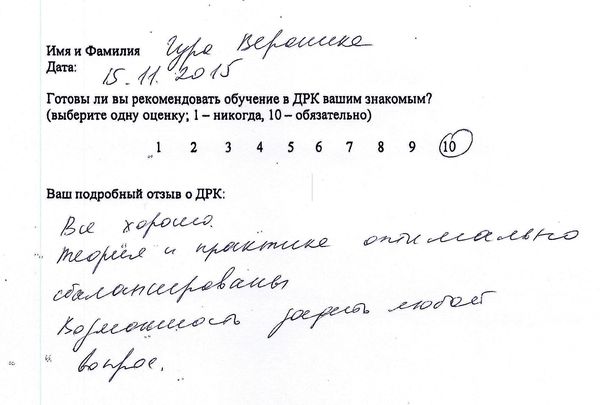 Имя и Фамилия Гура Вероника
Дата: 15.11.2015
Готовы ли вы рекомендовать обучение в ДРК вашим знакомым?
(выберите одну оценку; 1 – никогда, 10 – обязательно)
1 2 3 4 5 6 7 8 9 10
Ваш подробный отзыв о ДРК:
Все хорошо.
теория и практика оптимально
сбалансированы
Возможность задать любой
вопрос.